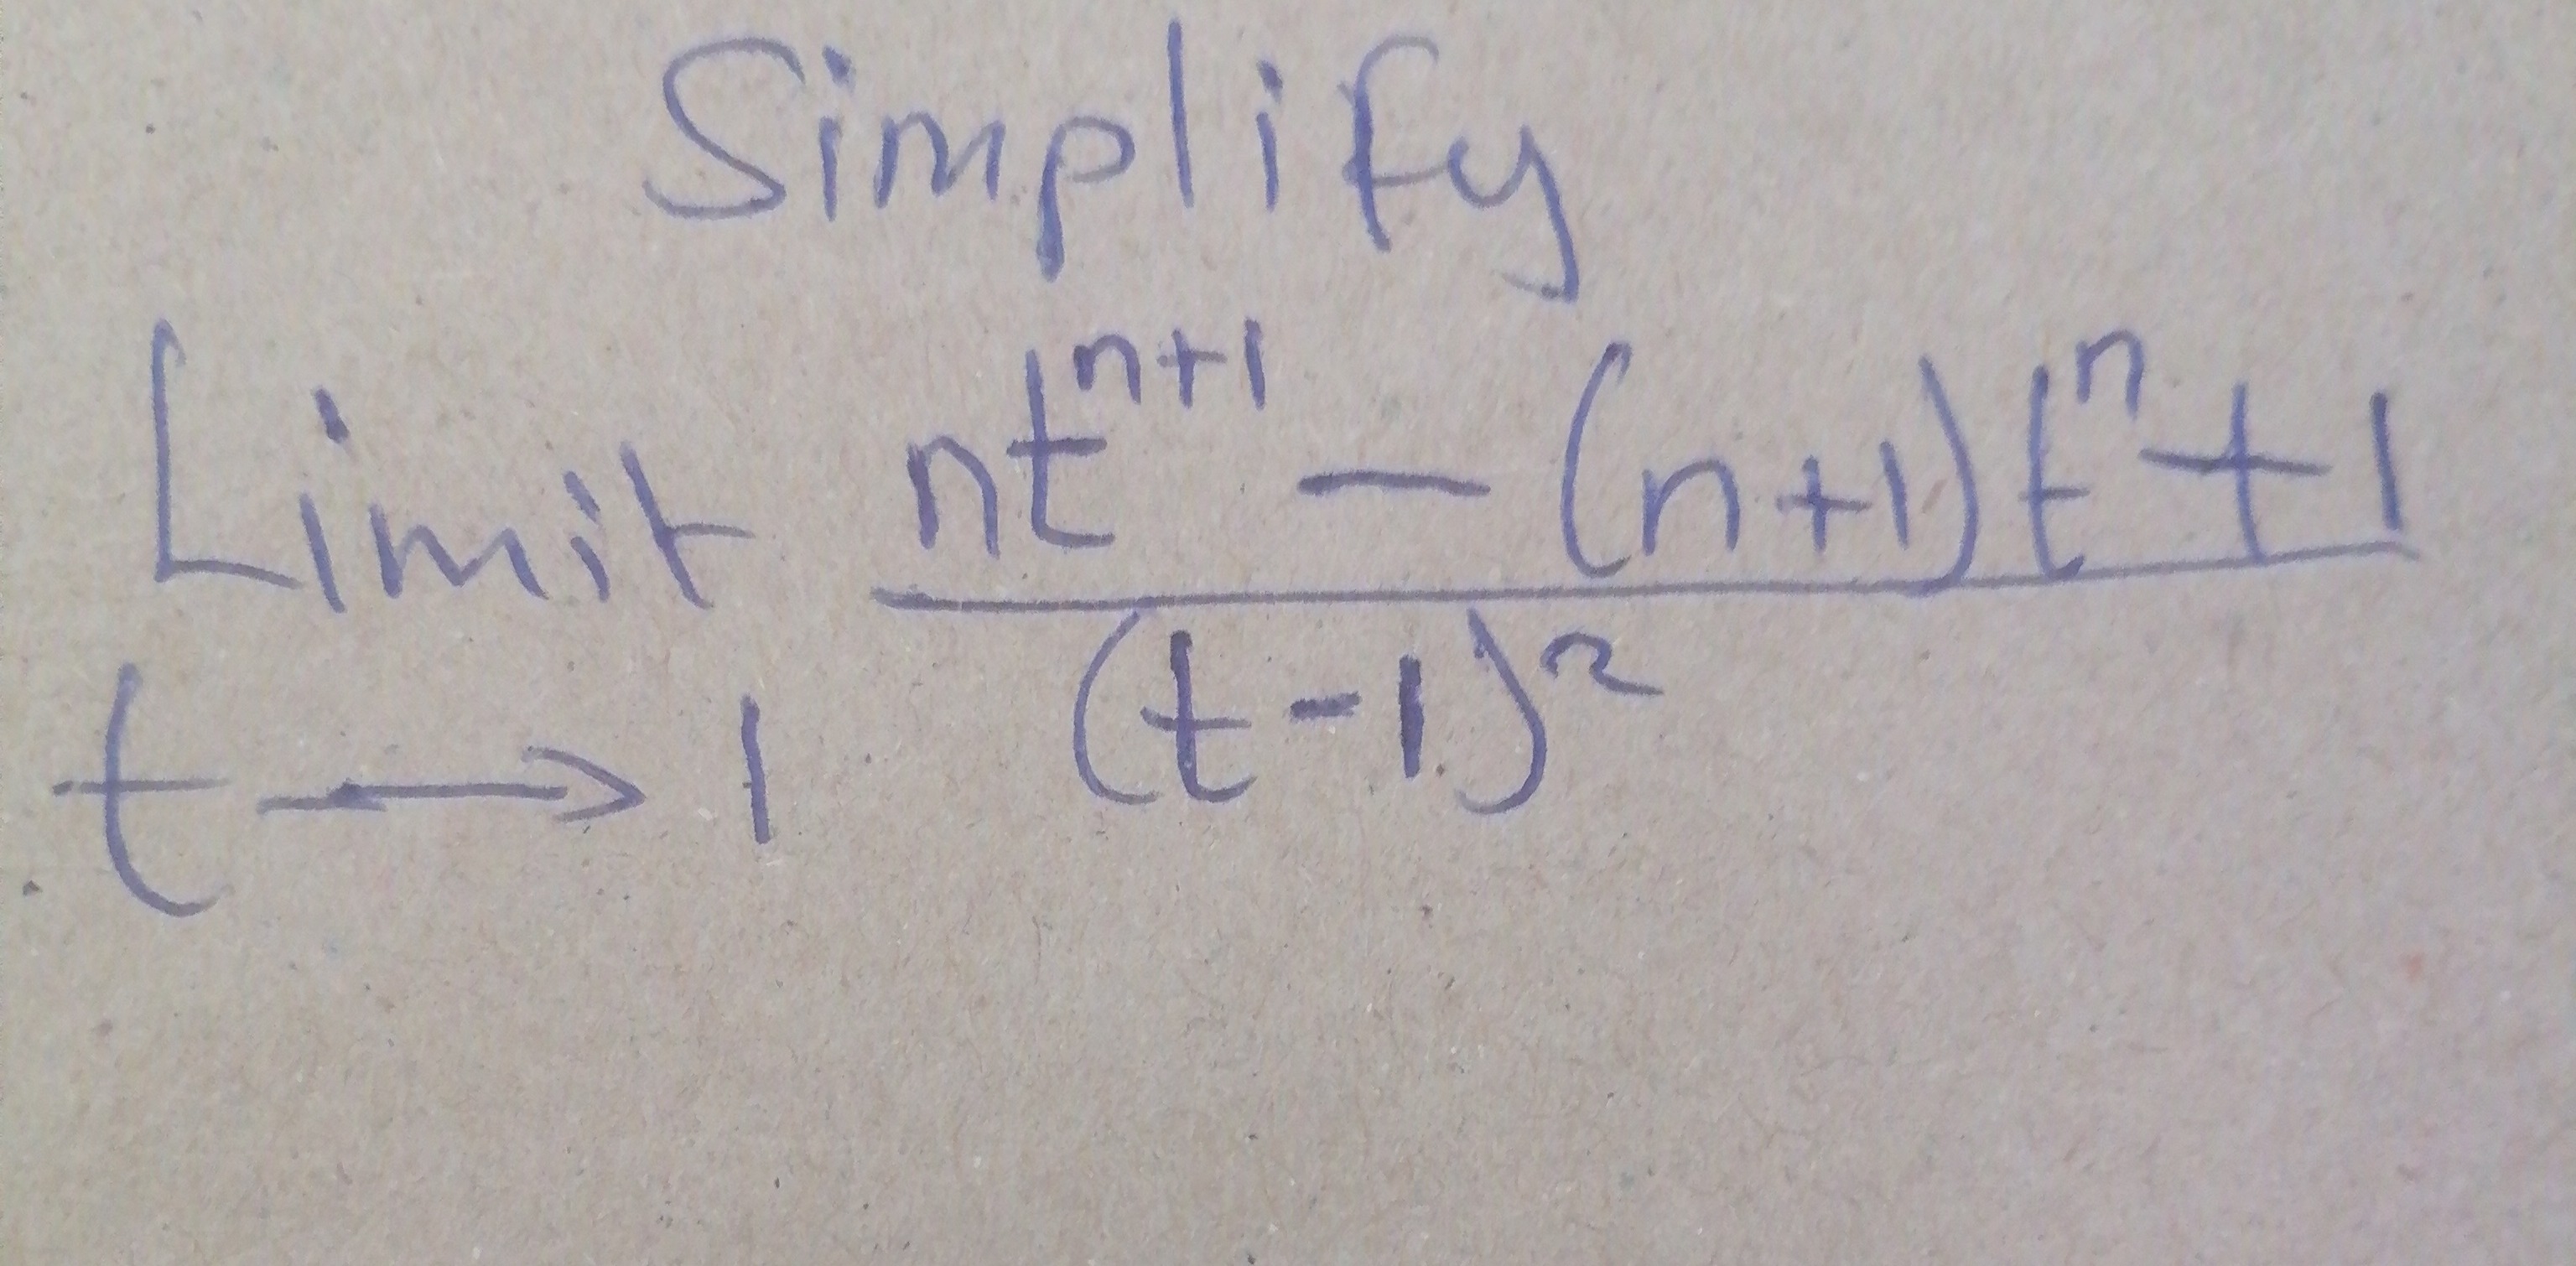 Simplify
Limit nt^{n+1} - (n+1)t^n + 1
t → 1 (t-1)^2